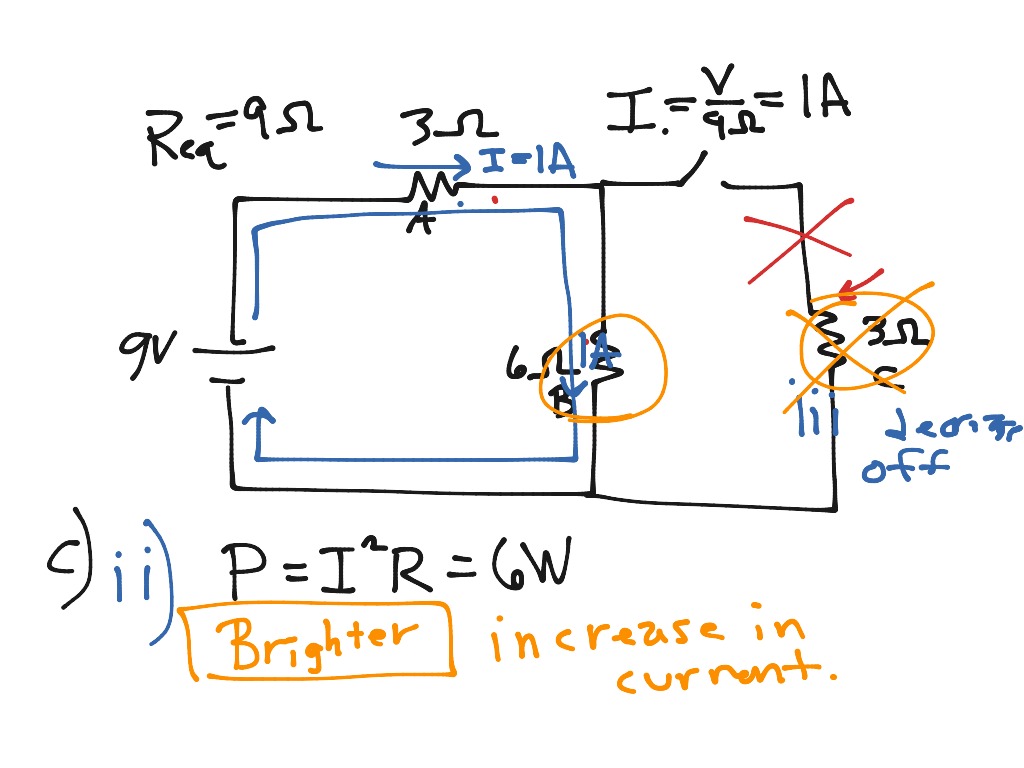 Req = 9Ω
3Ω
I = V/9Ω = 1A
I=1A
A
9V
6Ω
1A
B
3Ω
C
iii
off
c) ii) P = I²R = 6W
Brighter increase in
current.